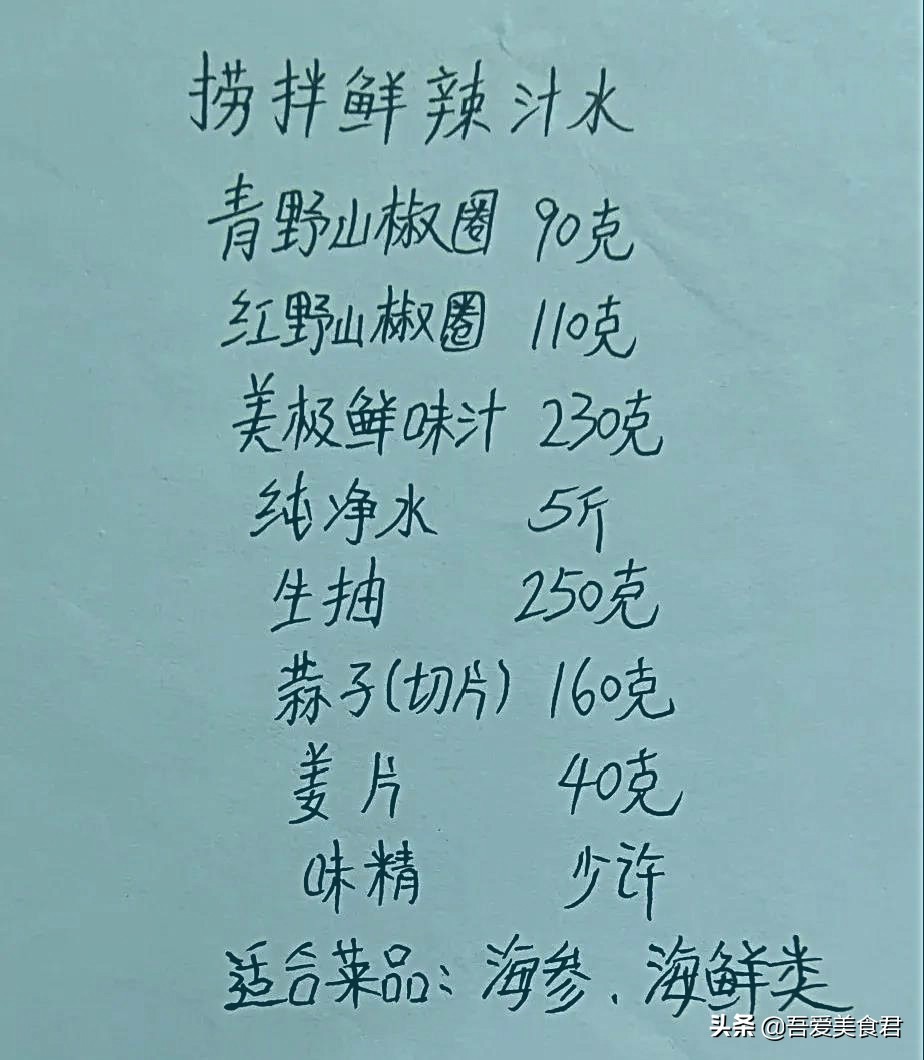 捞拌鲜辣汁水
青野山椒圈 90克
红野山椒圈 110克
美极鲜味汁 230克
纯净水 5斤
生抽 250克
蒜子(切片) 160克
姜片 40克
味精 少许
适合菜品：海参、海鲜类
头条 @吾爱美食君